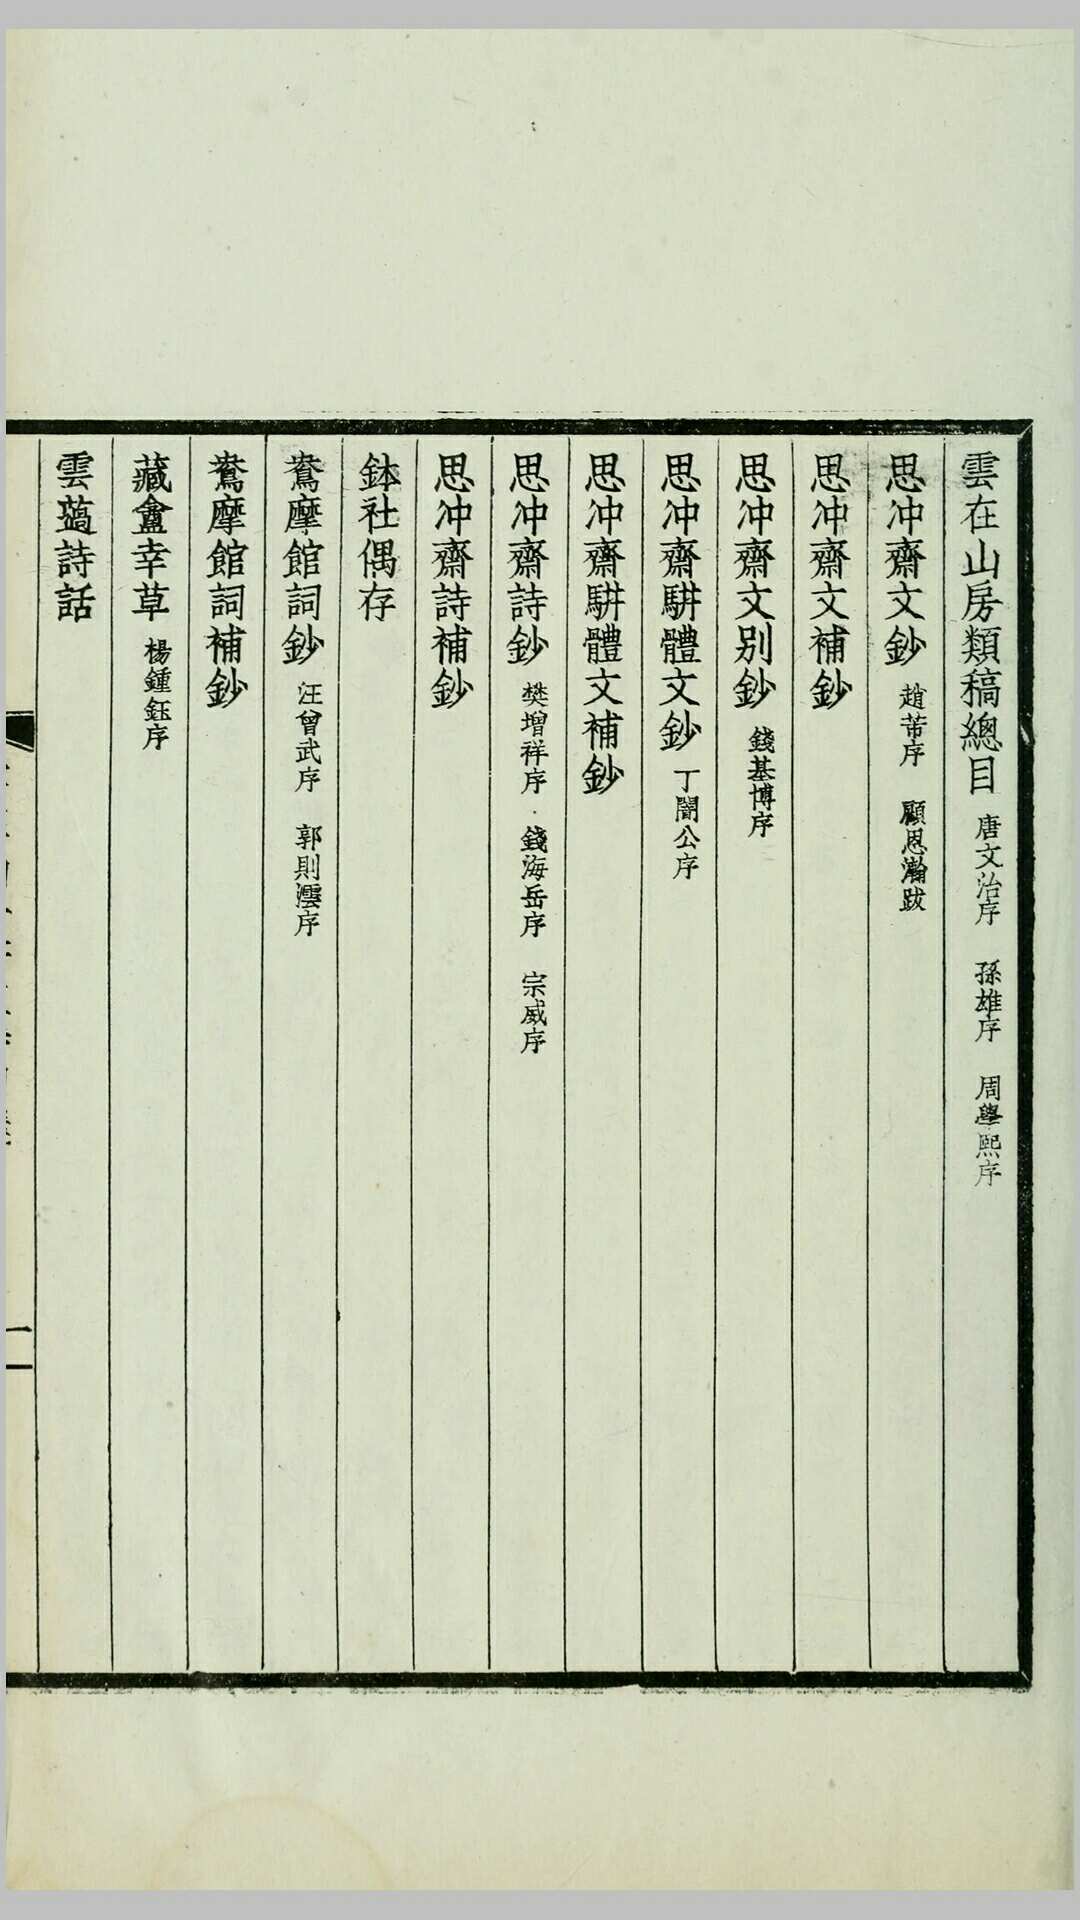 雲在山房類稿總目 唐文治序 孫雄序 周學熙序
思冲齋文鈔 趙芾序 顧恩瀚跋
思冲齋文補鈔
思冲齋文別鈔 錢基博序
思冲齋駢體文鈔 丁闇公序
思冲齋駢體文補鈔
思冲齋詩鈔 樊增祥序 錢海岳序 宗威序
思冲齋詩補鈔
鉢社偶存
鴦摩館詞鈔 汪曾武序 郭則澐序
鴦摩館詞補鈔
藏盦幸草 楊鍾鈺序
雲薖詩話
一